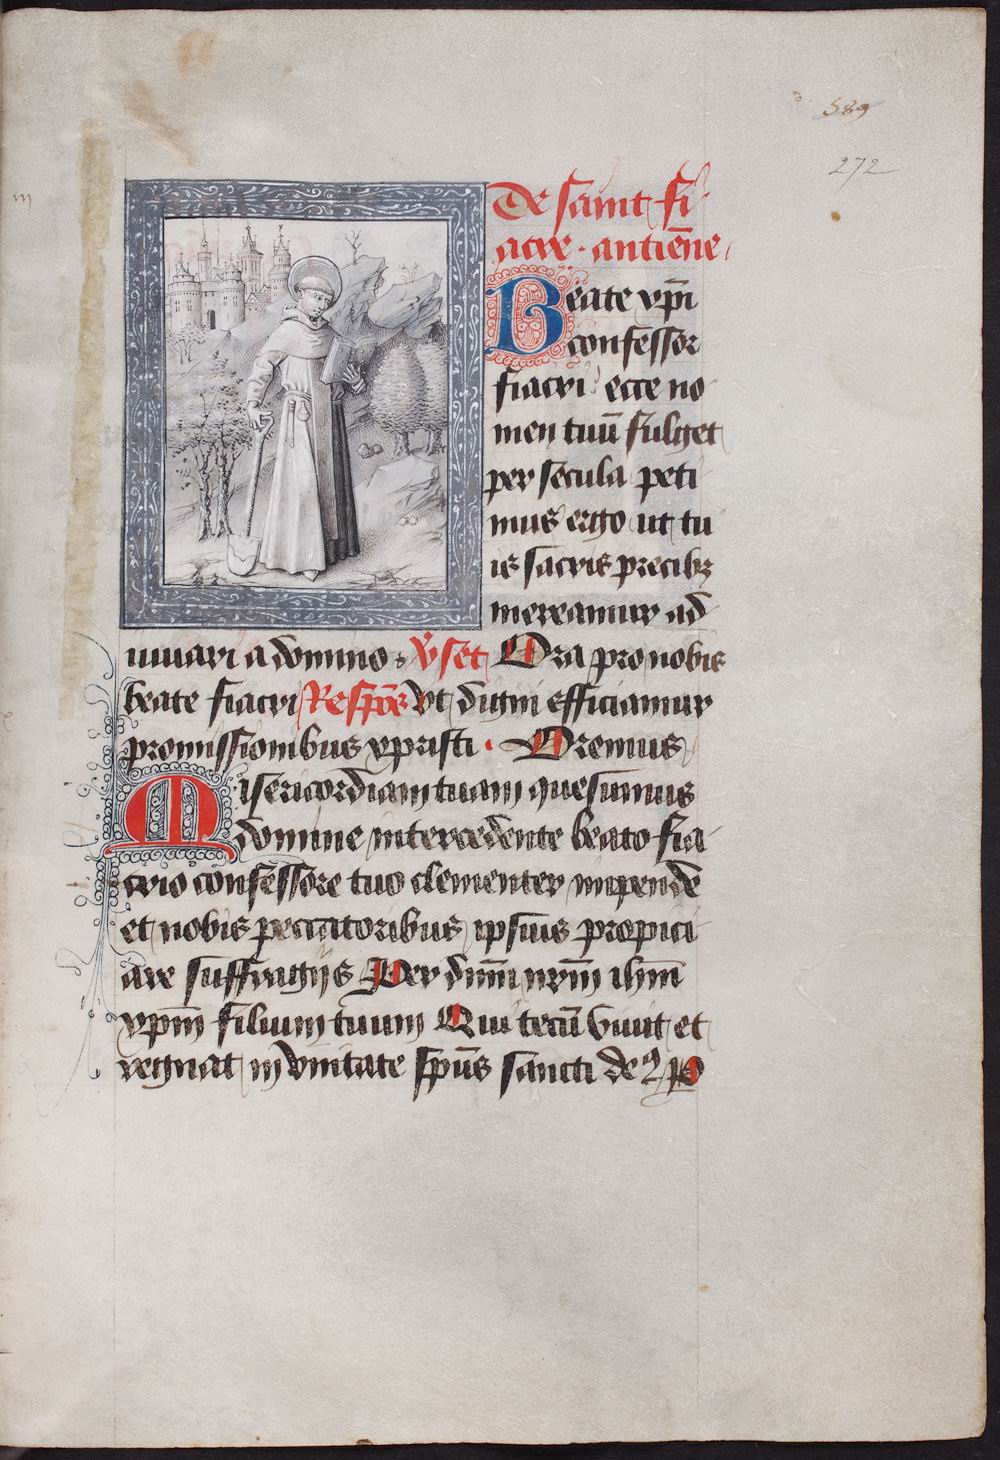 589
272
De saint fi
acre · antiēne
Beate xp̄i
confessor
fiacri ecce no
men tuū fulget
per secula peti
mus ergo ut tu
is sacris precibꝫ
mereamur ad
iuuari a domino. v̄set Ora pro nobis
beate fiacri Respōs Vt digni efficiamur
promissionibus xpristi · Oremus
Misericordiam tuam quesumus
domine intercedente beato fia
crio confessore tuo clementer impende
et nobis peccatoribus ipsius propici
are suffragijs Per dn̄m nr̄m ih̄m
xp̄m filium tuum Qui tecū viuit et
regnat in vnitate sp̄us sancti de2 p